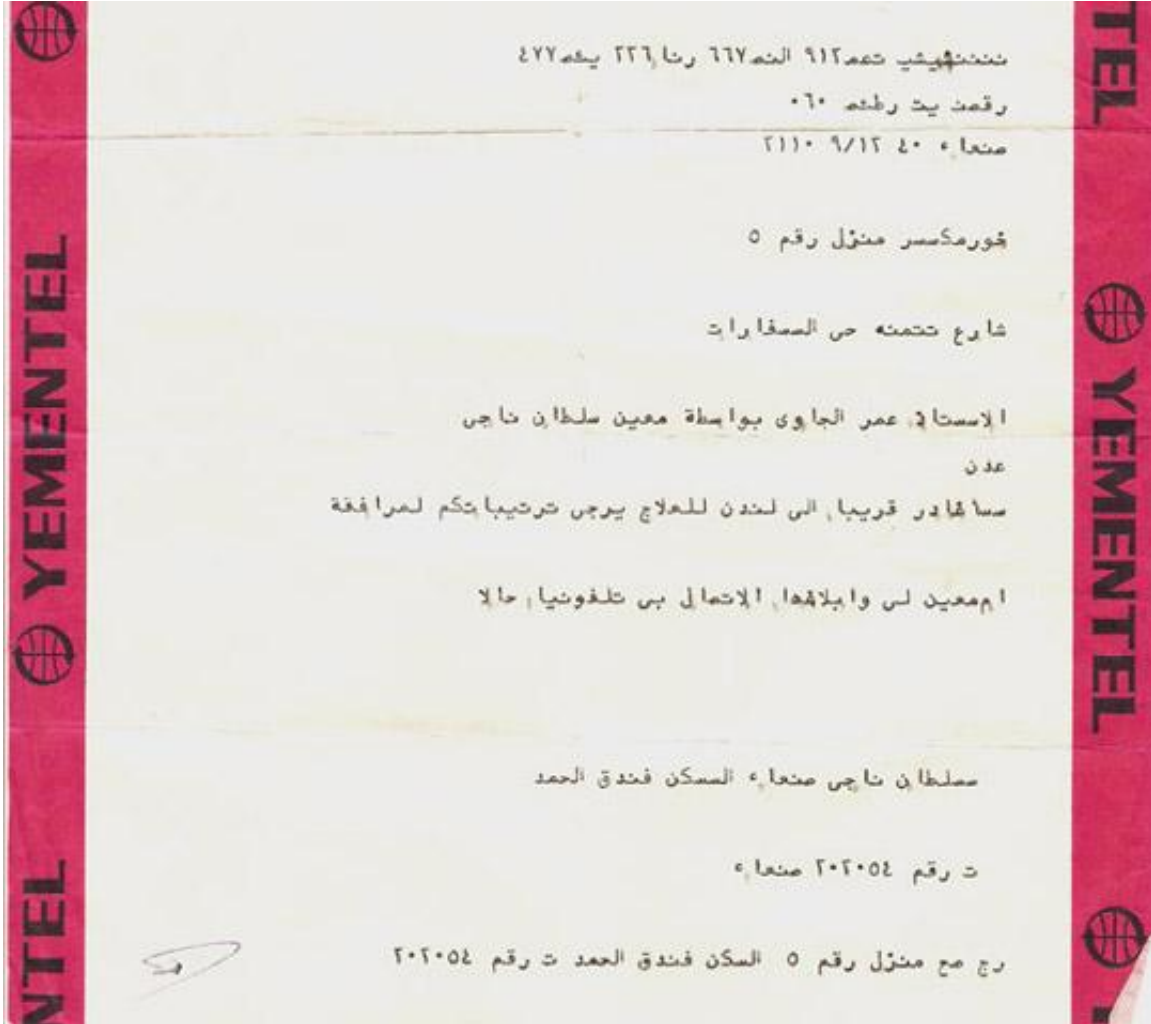 YEMENTEL
TEL
YEMENTEL
NTEL
ننننهيشب تعم٩١٢ النم٦٦٧ رنا ٢٢٦ يشم٤٧٧
رقمن يت رطئم ٠٦٠
صنعاء ٤٠ ٩/١٢ ٢١١٠
خورمكسر منزل رقم ٥
شارع تتمنه حى السفارات
الاستاذ عمر الجاوى بواسطة معين سلطان ناجى
عدن
ساغادر قريبا الى لندن للعلاج يرجى ترتيباتكم لمرافقة
ام معين لى وابلاغها الاتصال بى تلفونيا حالا
سلطان ناجى صنعاء السكن فندق الحمد
ت رقم ٢٠٢٠٥٤ صنعاء
رج مع منزل رقم ٥ السكن فندق الحمد ت رقم ٢٠٢٠٥٤